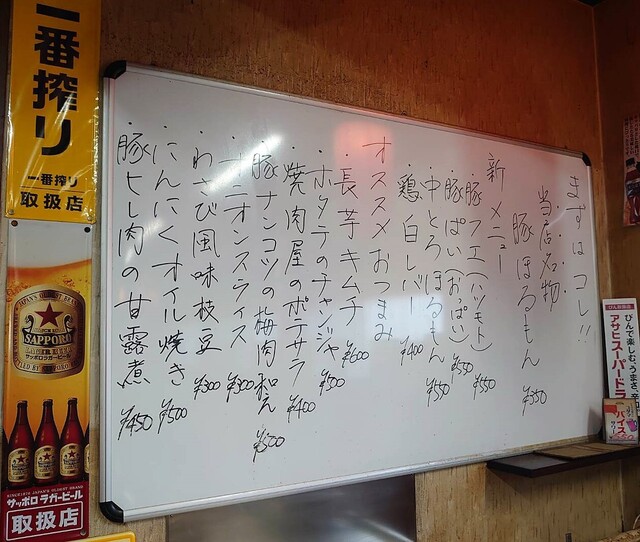 まずはコレ!!
当店名物
豚ほるもん ¥550
新メニュー
・豚フエ(ハツモト) ¥550
・豚ぱい(おっぱい) ¥550
・中とろほるもん ¥550
・鶏白レバー ¥400
オススメおつまみ
・長芋キムチ ¥600
・ホタテのチャンジャ ¥500
・焼肉屋のポテサラ ¥400
・豚ナンコツの梅肉和え ¥500
・オニオンスライス ¥300
・わさび風味枝豆 ¥300
・にんにくオイル焼き ¥500
・豚ヒレ肉の甘露煮 ¥450
一番搾り
一番搾り
取扱店
SAPPORO
サッポロラガービール
サッポロラガービール
取扱店
びんで楽しむ、うまさ、辛口
アサヒスーパードラ
バイス